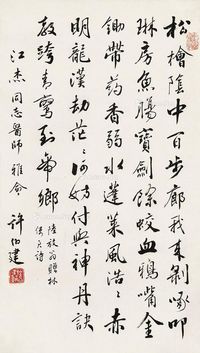 松檜陰中百步廊我來剝啄叩
琳房魚腸寶劍餘蛟血鴉嘴金
鋤帶药香弱水蓬萊風浩浩赤
明龍漢劫茫茫何妨付與神丹訣
教跨青鸞到帝鄉
陸放翁贈林
使君詩
江杰同志醫師雅令
許伯建